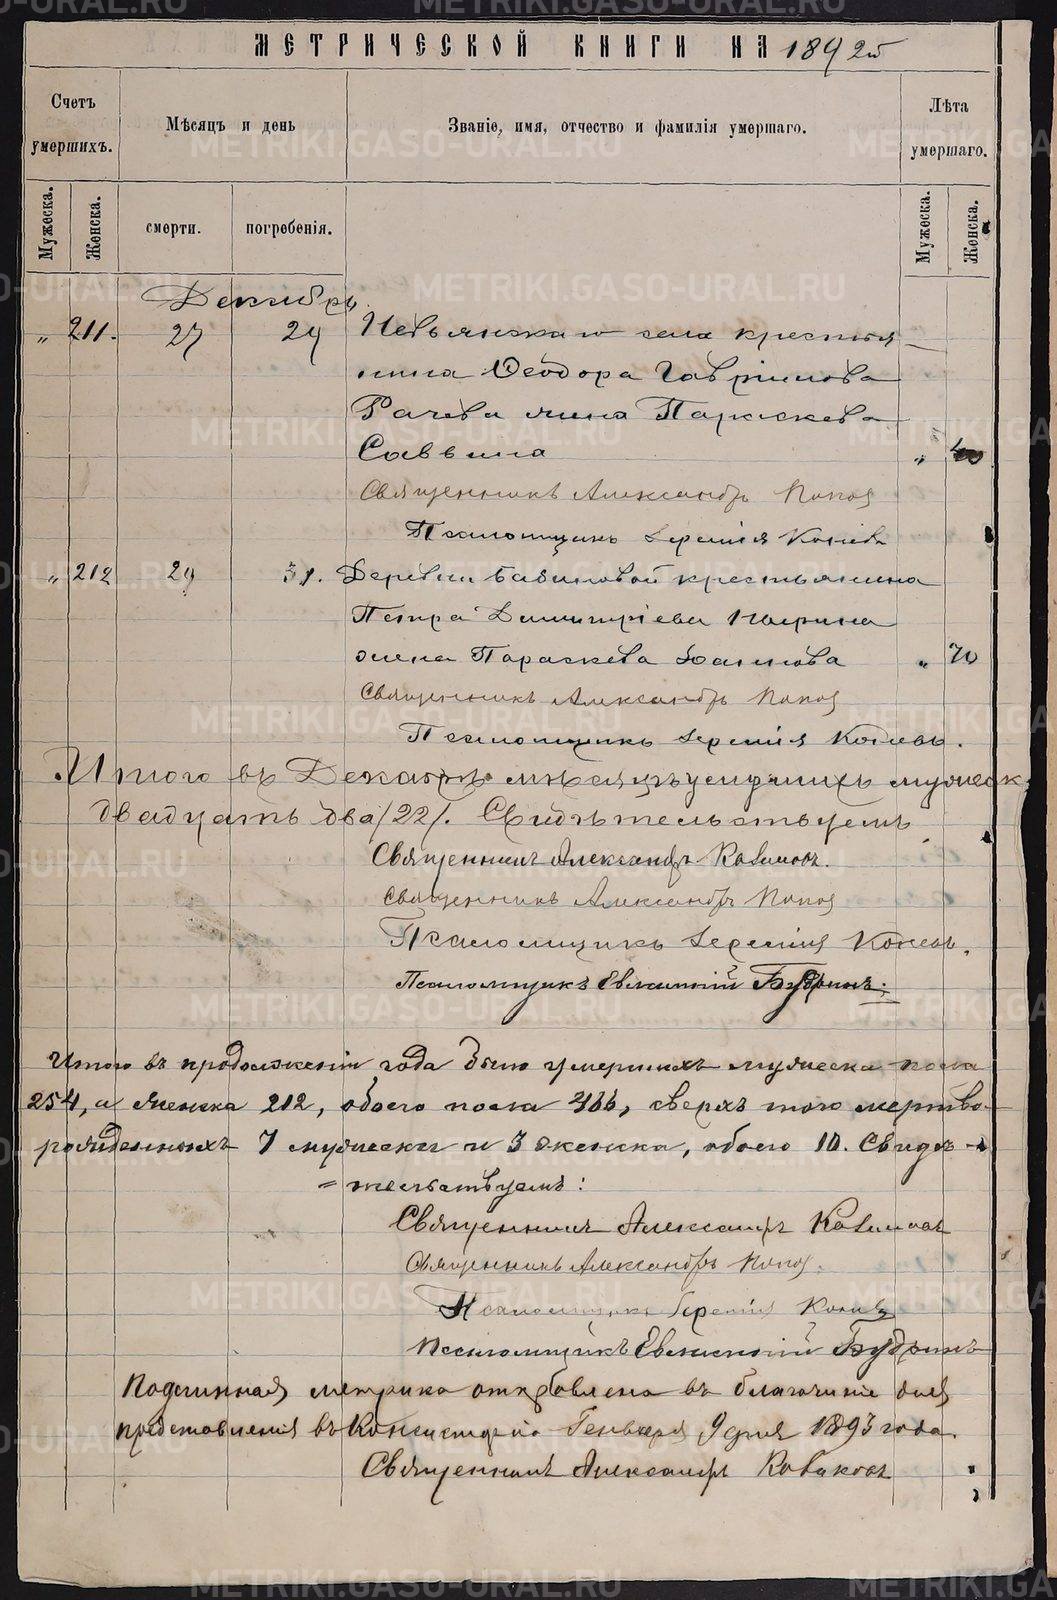 МЕТРИЧЕСКОЙ КНИГИ НА 1892й
Счетъ умершихъ.
Мѣсяцъ и день
Званіе, имя, отчество и фамилія умершаго.
Лѣта умершаго.
Мужеска.
Женска.
смерти.
погребенія.
Мужеска.
Женска.
Декабрь.
„ 211. 27 29 Невьянскаго села крестья
нина Ѳеодора Гаврилова
жена Параскева
Саввина „
Священникъ Александръ Попов
Псаломщикъ Іеремія Коневъ
„ 212 29 31. Деревни крестьянина
Петра Димитріева
жена Параскева „ 70
Священникъ Александръ Попов
Псаломщикъ Іеремія Коневъ.
Итого въ Декабрѣ мѣсяцѣ умершихъ мужеск.
двадцать два /22/. Свидѣтельствуемъ
Священникъ Александръ
Священникъ Александръ Попов
Псаломщикъ Іеремія Коневъ.
Псаломщикъ Евлампій Будринъ.
Итого въ продолженіи года было умершихъ мужеска пола
254, а женска 212, обоего пола 466, сверхъ того мертво-
рожденныхъ 7 мужеска и 3 женска, обоего 10. Свидѣ-
=тельствуемъ:
Священникъ Александръ
Священникъ Александръ Попов.
Псаломщикъ Іеремія Коневъ
Псаломщикъ Евлампій Будринъ
Подлинная метрика отправлена въ благочиніе для
представленія въ Консисторію Генваря 9 дня 1893 года.
Священникъ Александръ
METRIKI.GASO-URAL.RU